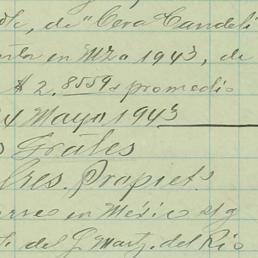 de "Cera Candeli
en Mzo 1943, de
$ 2.8559 promedio
4 Mayo 1943
Grátes
res. Propiets.
en México
del J. Martz. del Río